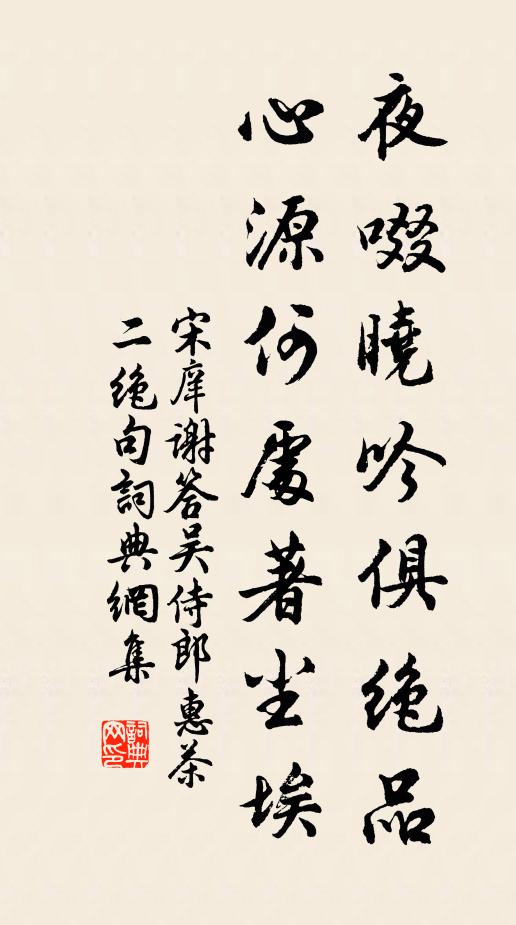 夜啜曉吟俱绝品
心源何處著尘埃
宋庠谢答吴侍郎惠茶
二绝句詞典網集
詞典
网印